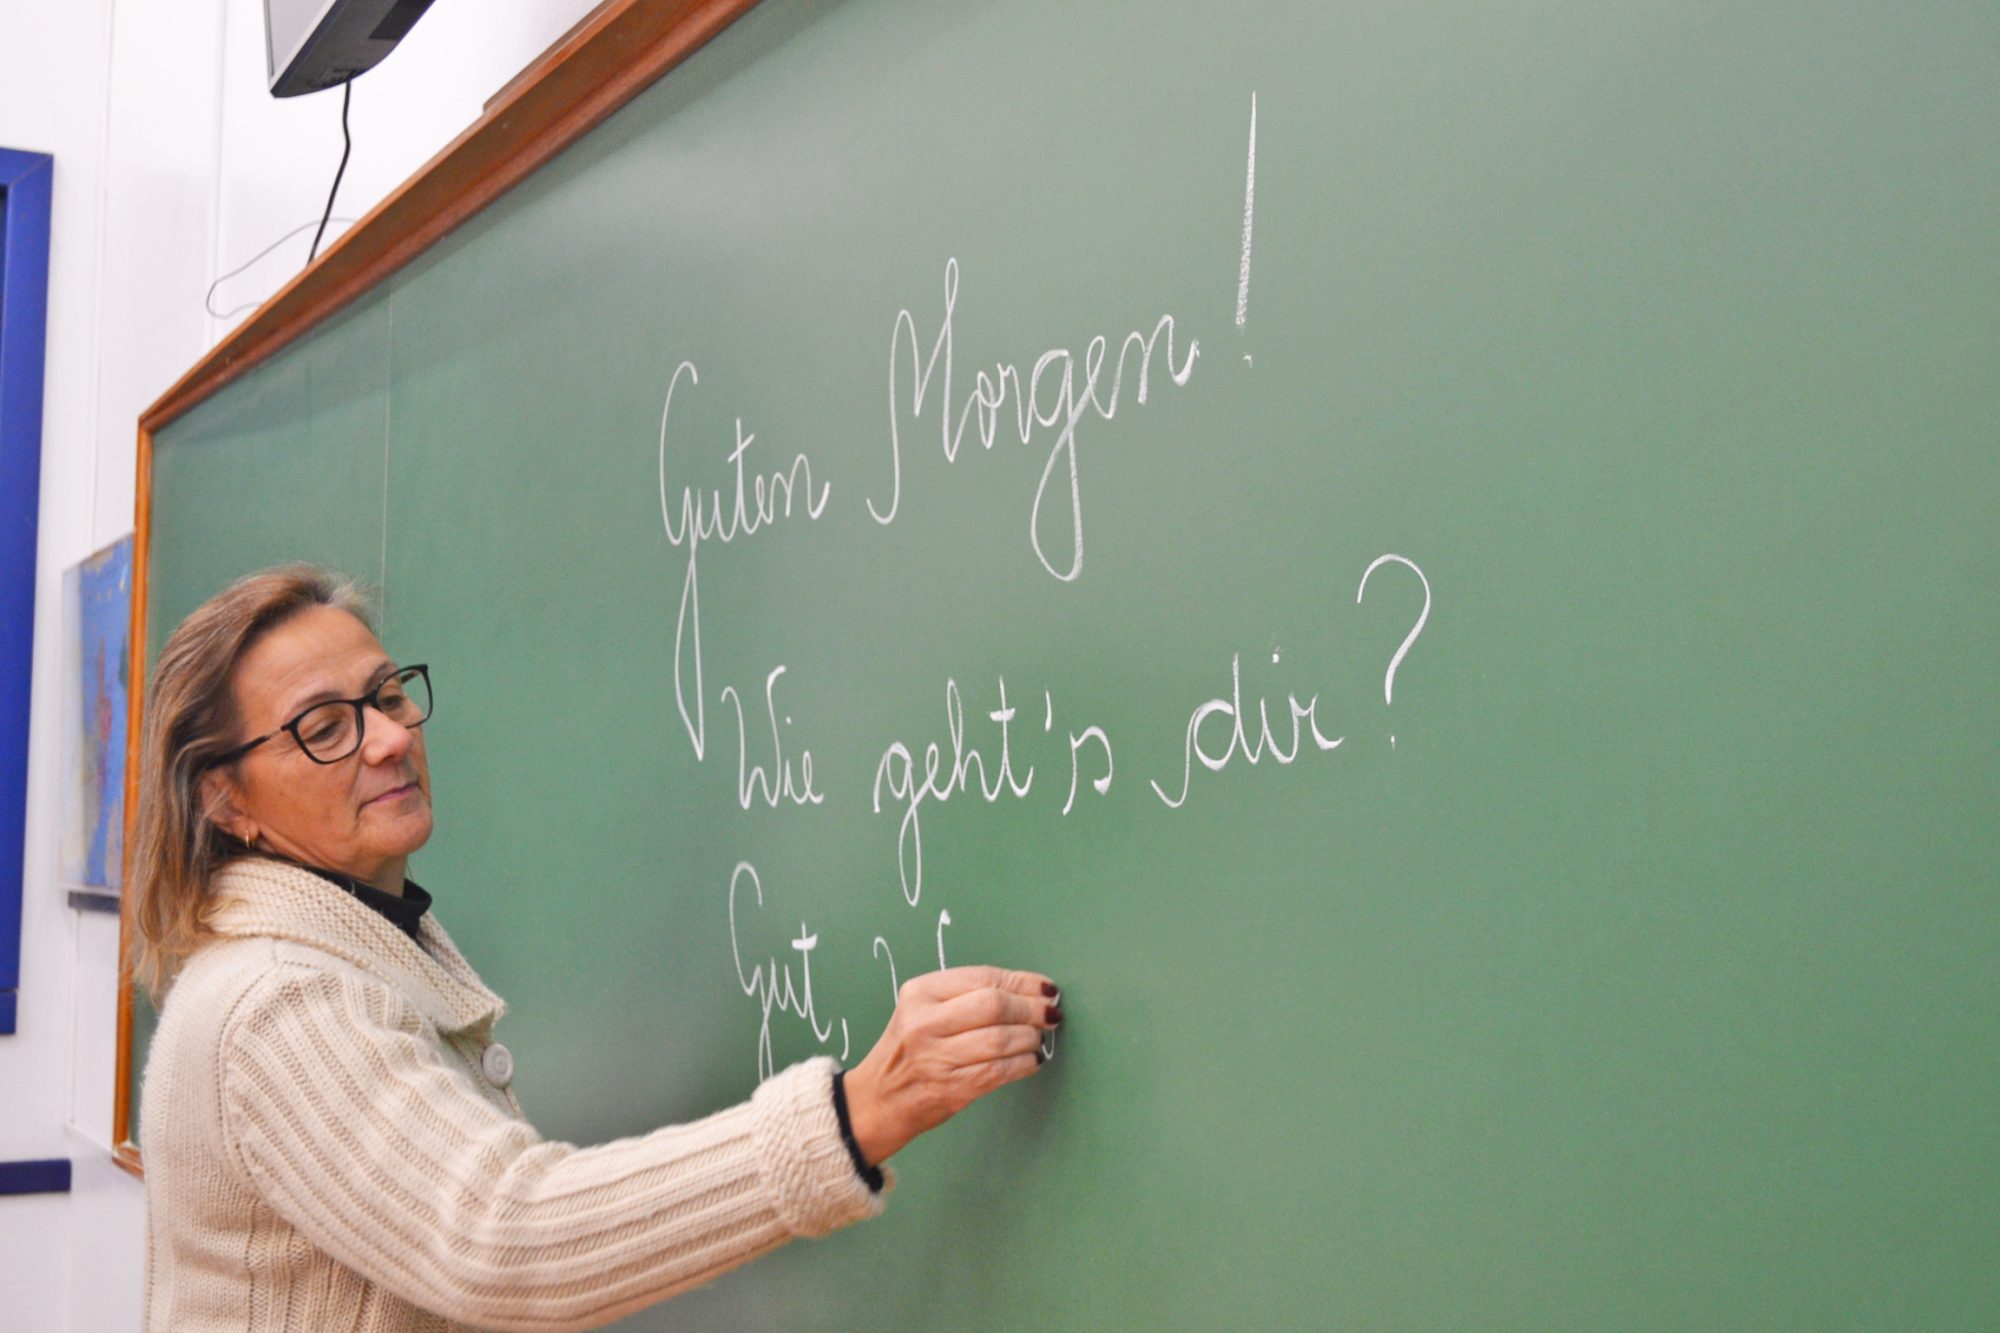 Guten Morgen!
Wie geht's dir?
Gut,